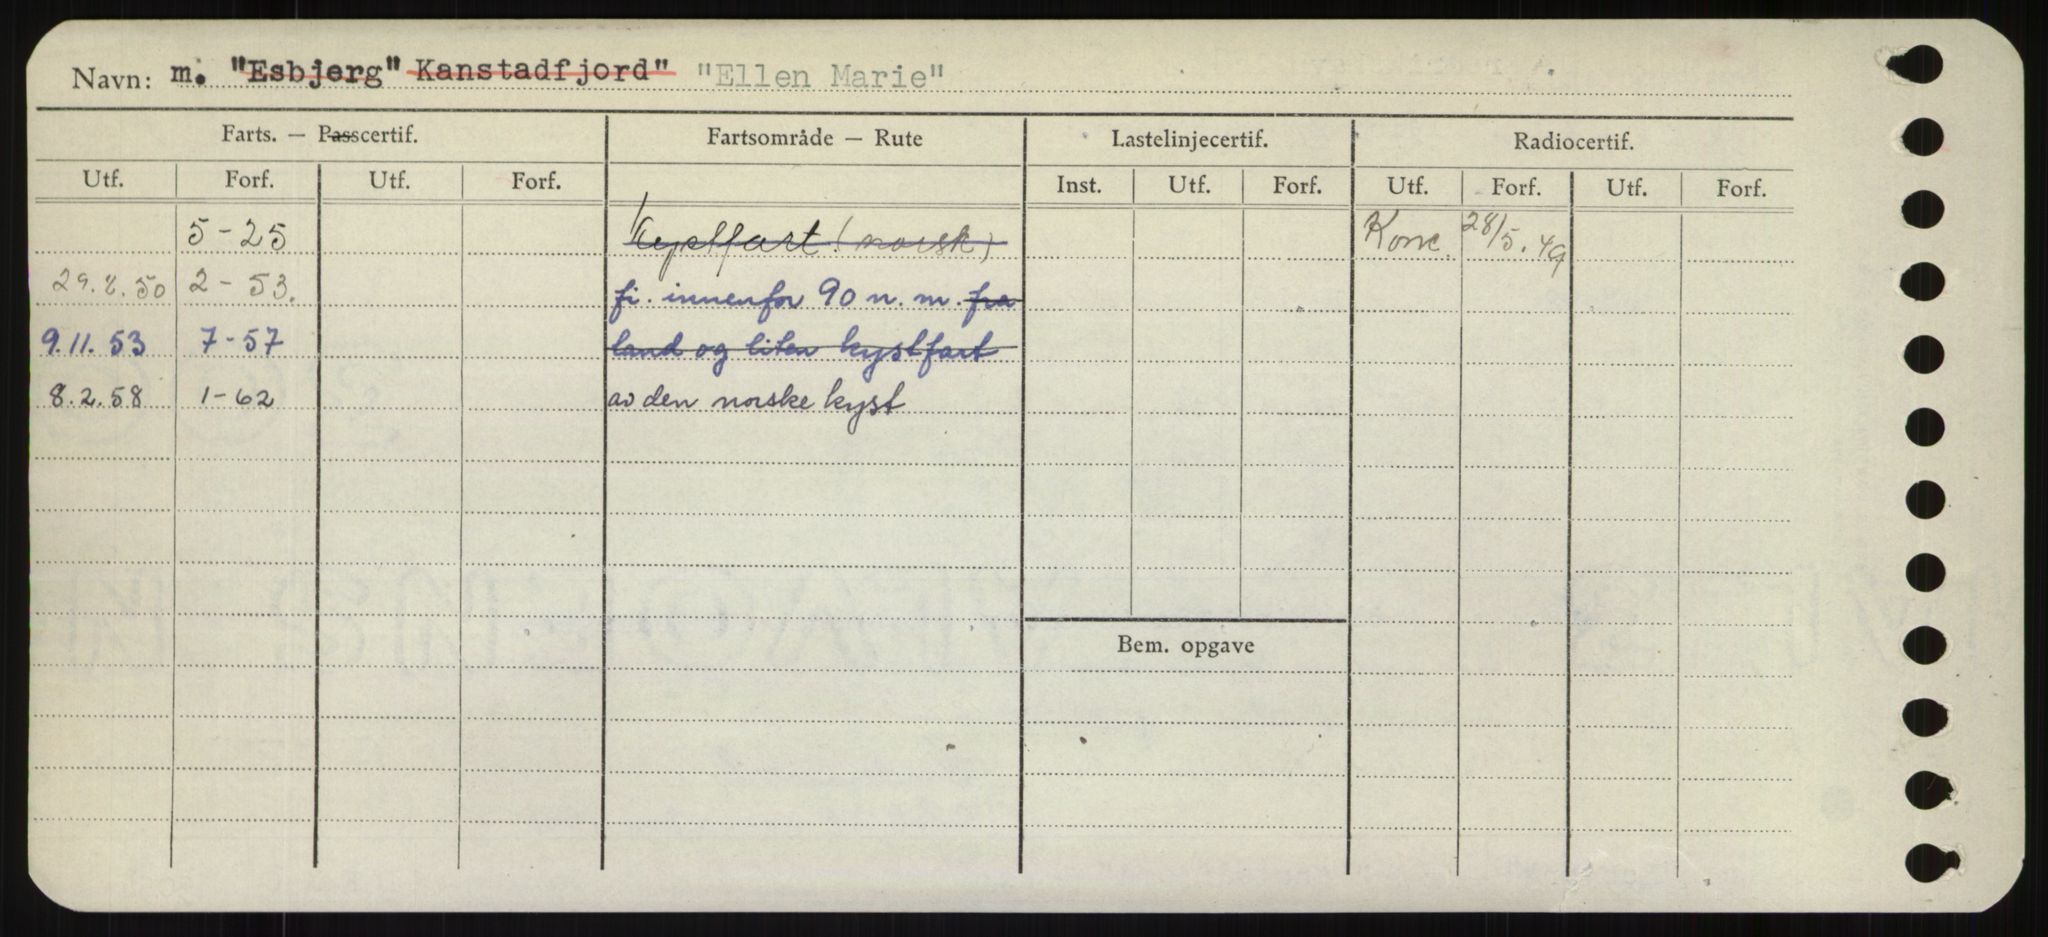 Navn: m. "Esbjerg" Kanstadfjord" "Ellen Marie"
Farts. — Passcertif. Fartsområde — Rute Lastelinjecertif. Radiocertif.
Utf. Forf. Utf. Forf. Inst. Utf. Forf. Utf. Forf. Utf. Forf.
5-25 Kystfart (norsk) Konc. 28/5.49
29.8.50 2-53. fi. innenfor 90 n.m. fra
9.11.53 7-57 land og liten kystfart
8.2.58 1-62 av den norske kyst
Bem. opgave